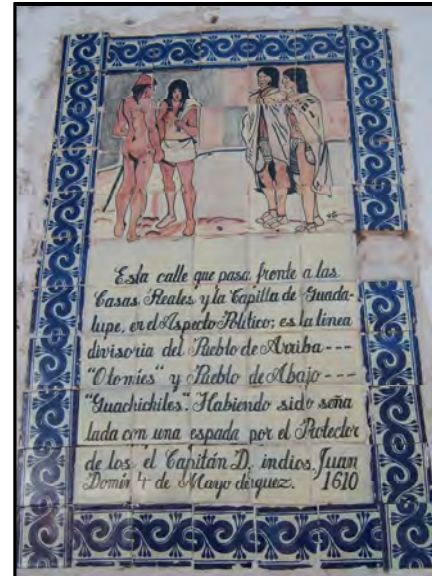 Esta calle que pasa frente a las
Casas Reales y la Capilla de Guada-
lupe, en el Aspecto Político; es la linea
divisoria del Pueblo de Arriba ---
"Otomíes" y Pueblo de Abajo ---
"Guachichiles". Habiendo sido seña
lada con una espada por el Protector
de los el Capitán D. indios, Juan
Domin 4 de Mayo dérguez. 1610